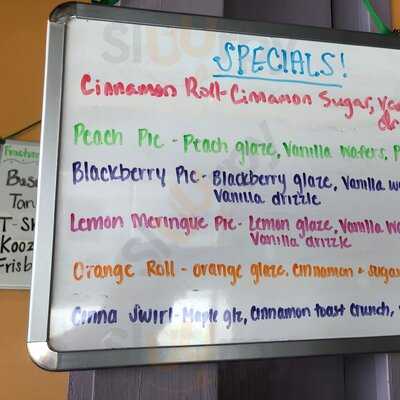 SPECIALS!
Cinnamon Roll-Cinnamon Sugar,
Peach Pie - Peach glaze, Vanilla Wafers, P
Blackberry Pie- Blackberry glaze, Vanilla W
Vanilla drizzle
Lemon Meringue Pie- Lemon glaze, Vanilla Wa
Vanilla drizzle
Orange Roll - orange glaze, cinnamon + sugar
Cinna Swirl-Maple glz, Cinnamon toast Crunch,
Tan
T-Sh
Kooz
Frisb